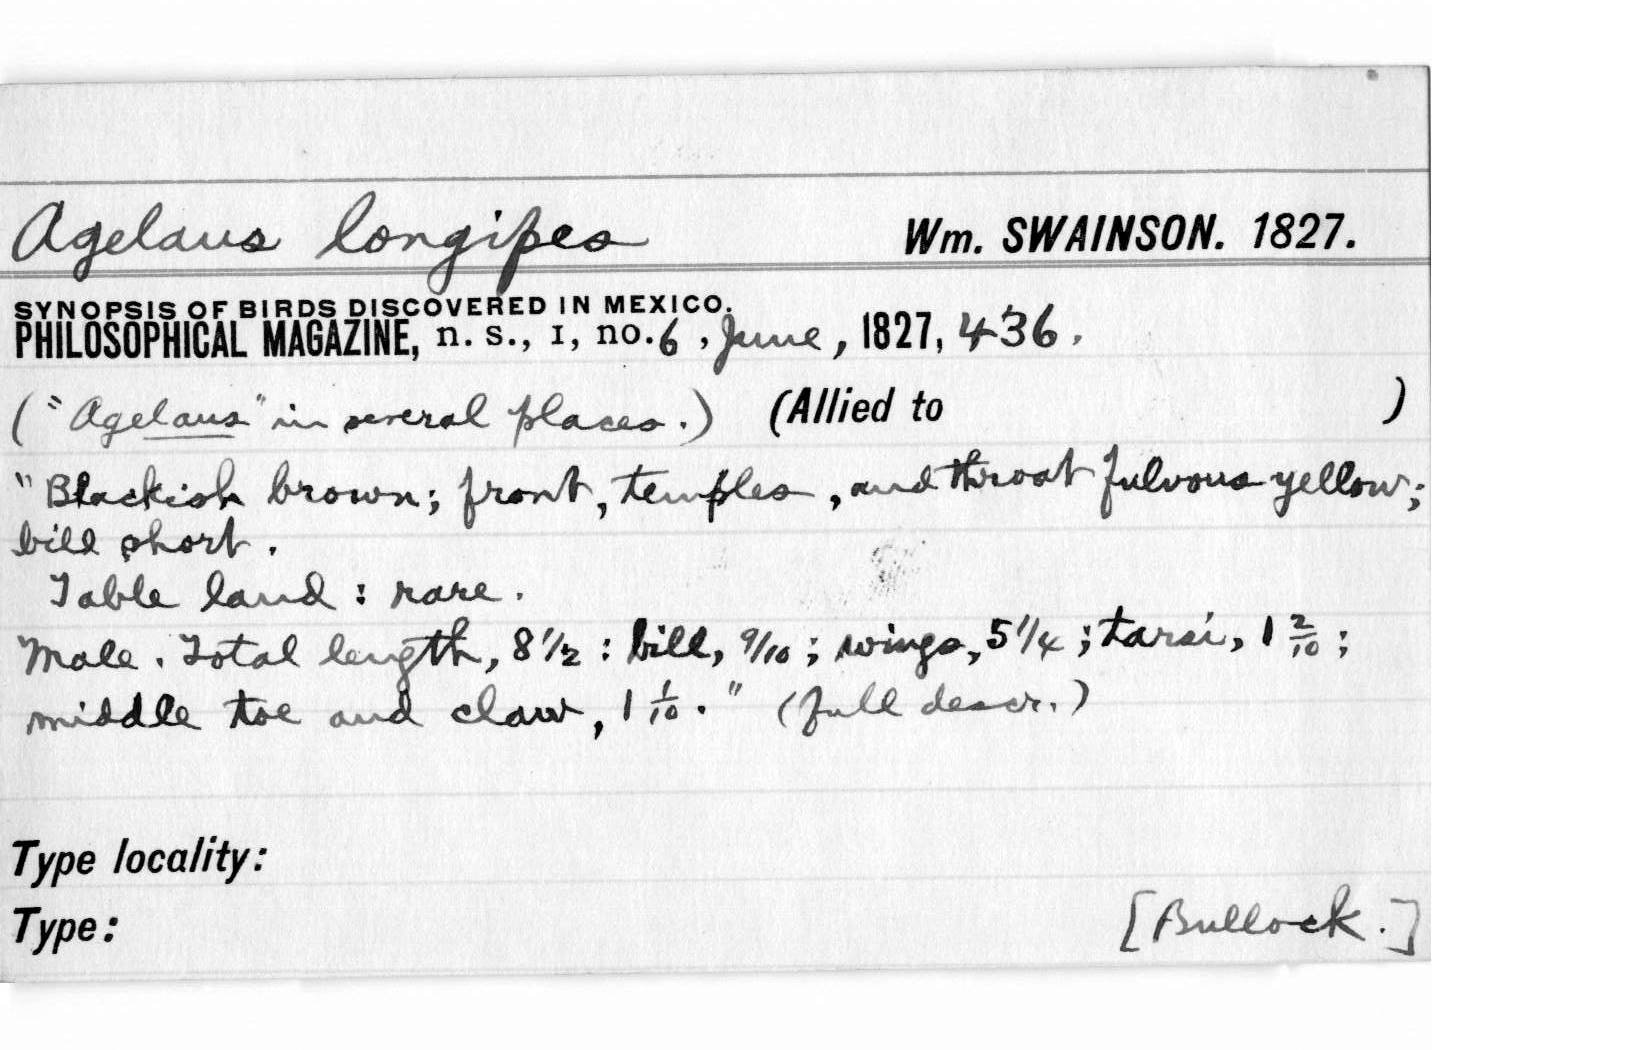 Agelaus longipes Wm. SWAINSON. 1827.
SYNOPSIS OF BIRDS DISCOVERED IN MEXICO.
PHILOSOPHICAL MAGAZINE, n. s., I, no. 6, June, 1827, 436.
("Agelaus" in several places.) (Allied to )
"Blackish brown; front, temples, and throat fulvous yellow;
bill short.
Table land: rare.
Male. Total length, 8 1/2: bill, 9/10; wings, 5 1/4; tarsi, 1 2/10;
middle toe and claw, 1 1/10." (full descr.)
Type locality:
Type: [Bullock.]